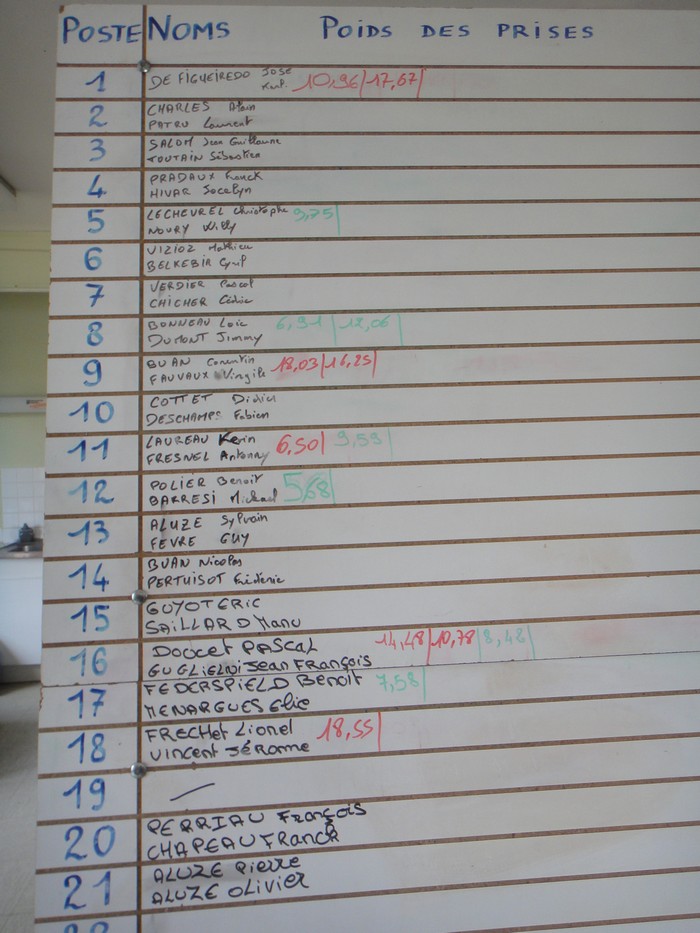 POSTE NOMS POIDS DES PRISES
1 DE FIGUEIREDO JOSE 10,96 17,67
2 CHARLES Alain
PATRU Laurent
3 SALOM Jean Guillaume
TOUTAIN Sébastien
4 PRADAUX Franck
HIVAR Jocelyn
5 LECHEVREL Christophe 9,75
NOURY Willy
6 VIZIOZ Mathieu
BELKEBIR Cyril
7 VERDIER Pascal
CHICHER Cédric
8 BONNEAU Loic 6,91 12,06
DUMONT Jimmy
9 BUAN Corentin 18,03 16,25
FAUVAUX Virgile
10 COTTET Didier
DESCHAMPS Fabien
11 LAUREAU Kevin 6,50 9,59
FRESNEL Antonny
12 POLIER Benoit 5,68
BARRESI Mickael
13 ALUZE Sylvain
FEVRE GUY
14 BUAN Nicolas
PERTUISOT Frédéric
15 GUYOT ERIC
SAILLARD Manu
16 Doucet PASCAL 14,48 10,78 8,48
GUGLIELMI Jean François
17 FEDERSPIELD Benoit 7,58
MENARGUES Elie
18 FRECHET Lionel 18,55
Vincent Jérome
19 —
20 PERRIAU François
CHAPEAU FRANCK
21 ALUZE Pierre
ALUZE OLIVIER